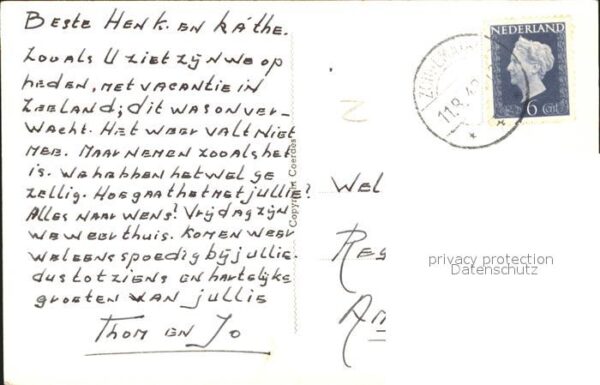 Beste Henk. en Käthe.
Zooals U ziet zijn we op
heden, met vacantie in
Zeeland; dit was onver-
wacht. Het weer valt niet
mee. Maar nemen zooals het
is. We hebben het wel ge
zellig. Hoe gaat het met jullie?
Alles naar wens? Vrijdag zijn
we weer thuis. Komen weer
wel eens spoedig bij jullie.
dus tot ziens en hartelijke
groeten van jullie
Thom en Jo
Copyright Coerdes
NEDERLAND
6 Cnt
Wel
Res
Am
privacy protection
Datenschutz